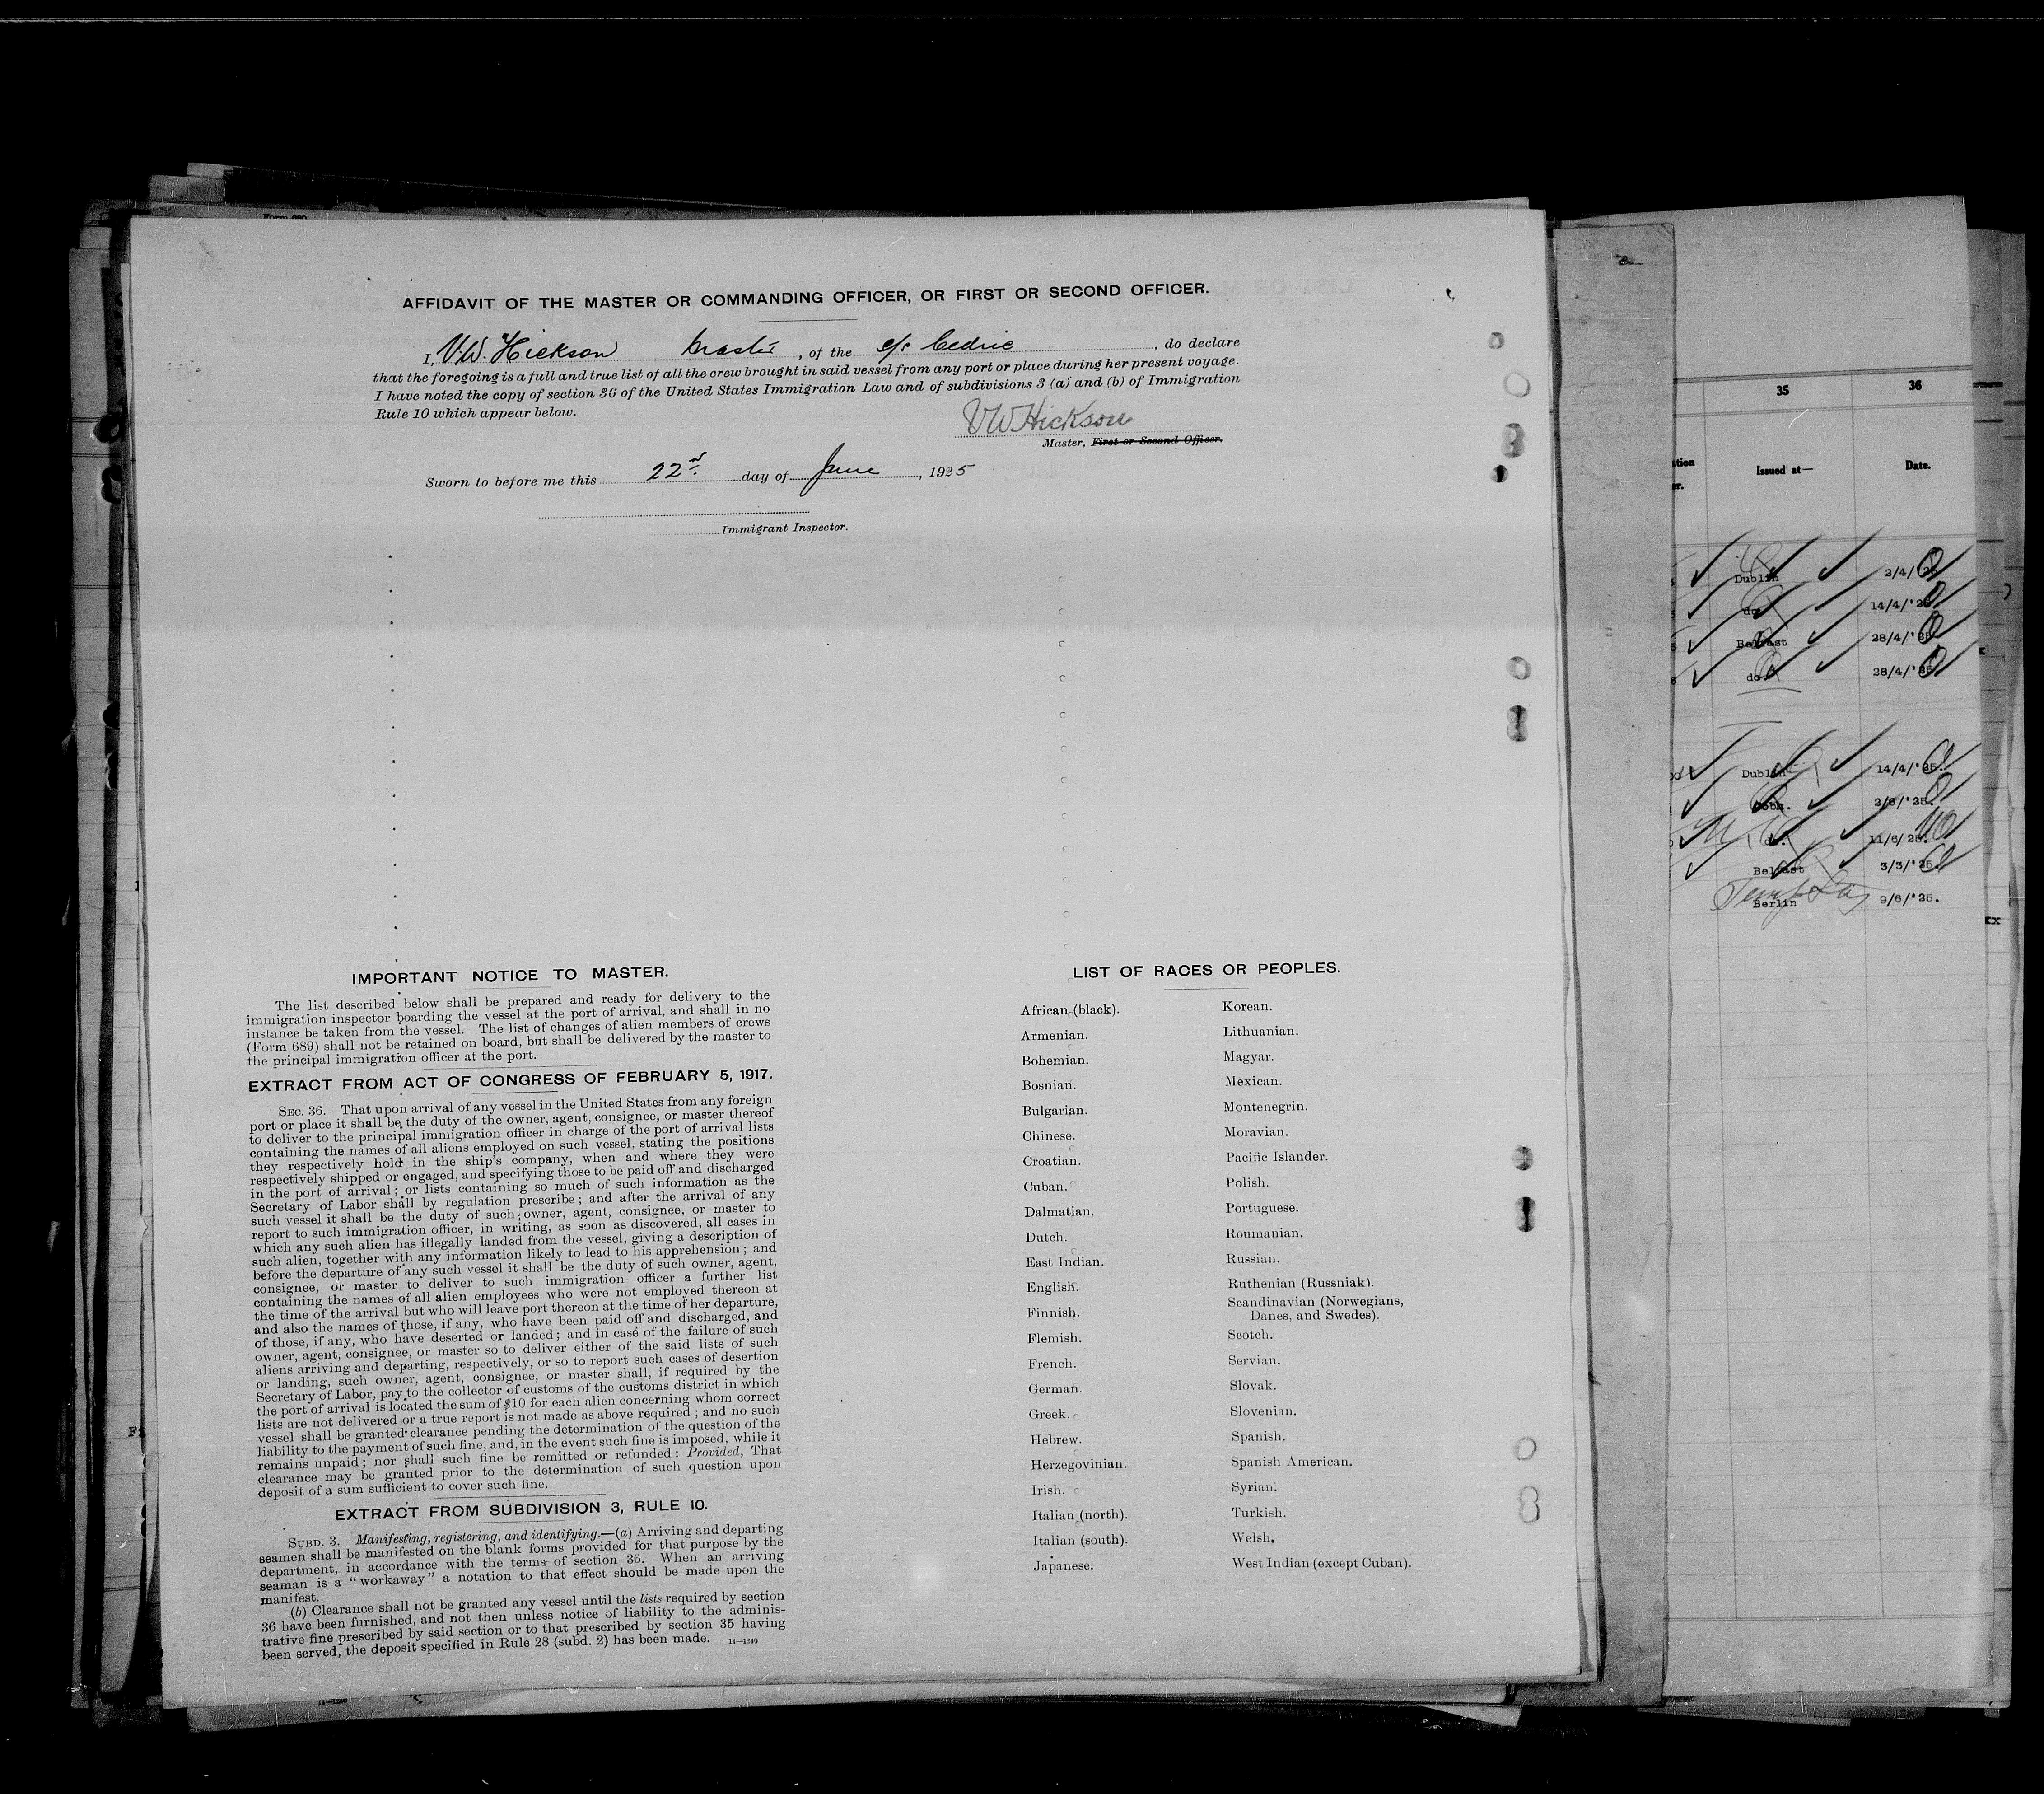 Form 690
AFFIDAVIT OF THE MASTER OR COMMANDING OFFICER, OR FIRST OR SECOND OFFICER.
I, V.W. Hickson Master, of the s/s Cedric, do declare
that the foregoing is a full and true list of all the crew brought in said vessel from any port or place during her present voyage.
I have noted the copy of section 36 of the United States Immigration Law and of subdivisions 3 (a) and (b) of Immigration
Rule 10 which appear below.
VW Hickson
Master, First or Second Officer.
Sworn to before me this 22nd day of June, 1925
Immigrant Inspector.
IMPORTANT NOTICE TO MASTER.
The list described below shall be prepared and ready for delivery to the
immigration inspector boarding the vessel at the port of arrival, and shall in no
instance be taken from the vessel. The list of changes of alien members of crews
(Form 689) shall not be retained on board, but shall be delivered by the master to
the principal immigration officer at the port.
EXTRACT FROM ACT OF CONGRESS OF FEBRUARY 5, 1917.
SEC. 36. That upon arrival of any vessel in the United States from any foreign
port or place it shall be the duty of the owner, agent, consignee, or master thereof
to deliver to the principal immigration officer in charge of the port of arrival lists
containing the names of all aliens employed on such vessel, stating the positions
they respectively hold in the ship's company, when and where they were
respectively shipped or engaged, and specifying those to be paid off and discharged
in the port of arrival; or lists containing so much of such information as the
Secretary of Labor shall by regulation prescribe; and after the arrival of any
such vessel it shall be the duty of such owner, agent, consignee, or master to
report to such immigration officer, in writing, as soon as discovered, all cases in
which any such alien has illegally landed from the vessel, giving a description of
such alien, together with any information likely to lead to his apprehension; and
before the departure of any such vessel it shall be the duty of such owner, agent,
consignee, or master to deliver to such immigration officer a further list
containing the names of all alien employees who were not employed thereon at
the time of the arrival but who will leave port thereon at the time of her departure,
and also the names of those, if any, who have been paid off and discharged, and
of those, if any, who have deserted or landed; and in case of the failure of such
owner, agent, consignee, or master so to deliver either of the said lists of such
aliens arriving and departing, respectively, or so to report such cases of desertion
or landing, such owner, agent, consignee, or master shall, if required by the
Secretary of Labor, pay to the collector of customs of the customs district in which
the port of arrival is located the sum of $10 for each alien concerning whom correct
lists are not delivered or a true report is not made as above required; and no such
vessel shall be granted clearance pending the determination of the question of the
liability to the payment of such fine, and, in the event such fine is imposed, while it
remains unpaid; nor shall such fine be remitted or refunded: Provided, That
clearance may be granted prior to the determination of such question upon
deposit of a sum sufficient to cover such fine.
EXTRACT FROM SUBDIVISION 3, RULE 10.
SUBD. 3. Manifesting, registering, and identifying.—(a) Arriving and departing
seamen shall be manifested on the blank forms provided for that purpose by the
department, in accordance with the terms of section 36. When an arriving
seaman is a "workaway" a notation to that effect should be made upon the
manifest.
(b) Clearance shall not be granted any vessel until the lists required by section
36 have been furnished, and not then unless notice of liability to the adminis-
trative fine prescribed by said section or to that prescribed by section 35 having
been served, the deposit specified in Rule 28 (subd. 2) has been made. 14—1240
LIST OF RACES OR PEOPLES.
African (black).
Armenian.
Bohemian.
Bosnian.
Bulgarian.
Chinese.
Croatian.
Cuban.
Dalmatian.
Dutch.
East Indian.
English.
Finnish.
Flemish.
French.
German.
Greek.
Hebrew.
Herzegovinian.
Irish.
Italian (north).
Italian (south).
Japanese.
Korean.
Lithuanian.
Magyar.
Mexican.
Montenegrin.
Moravian.
Pacific Islander.
Polish.
Portuguese.
Roumanian.
Russian.
Ruthenian (Russniak).
Scandinavian (Norwegians,
Danes, and Swedes).
Scotch.
Servian.
Slovak.
Slovenian.
Spanish.
Spanish American.
Syrian.
Turkish.
Welsh.
West Indian (except Cuban).
35 36
Issued at— Date.
Dublin 2/4/
do. 14/4/'25
Belfast 28/4/'25
do. 28/4/'25
Dublin 14/4/'25.
Cobh. 2/6/'25.
do. 11/6/25.
Belfast 3/3/'25.
Berlin 9/6/'25.
14—1240